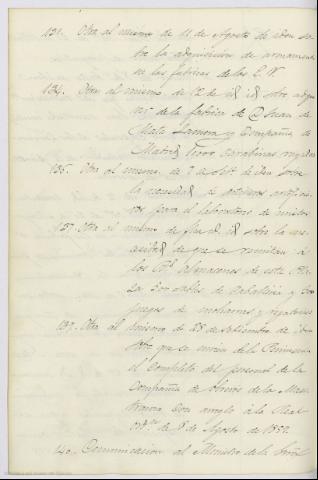 131. Otra al mismo de 11 de Agosto de idem so-
bre la adquisicion de armamento
en las fabricas de los E. U.
134. Otra al mismo de 12 de id id sobre adqu
de la fabrica de D Juan de
Mata Zamora y Compañia de
Madrid carabinas rayadas
135. Otra al mismo de 2 de Sete. de idem sobre
la necesidad de artificie-
ros para el laboratorio de mistos
137. Otra al mismo de id id sobre la ne-
cesidad de que se remitan á
los Rs. almacenes de esta Pla-
za 300 sables de Caballeria y
juegos de mohamos y regatones
139. Otra al mismo de 28 de Setiembre de idem
sobre que se envien de la Peninsula
el Completo del personal de la
Compañia de Obreros de la Maes-
tranza Con arreglo á la Real
Ordn. de 8 de Agosto de 1859.
140. Comunicacion al Ministro de la